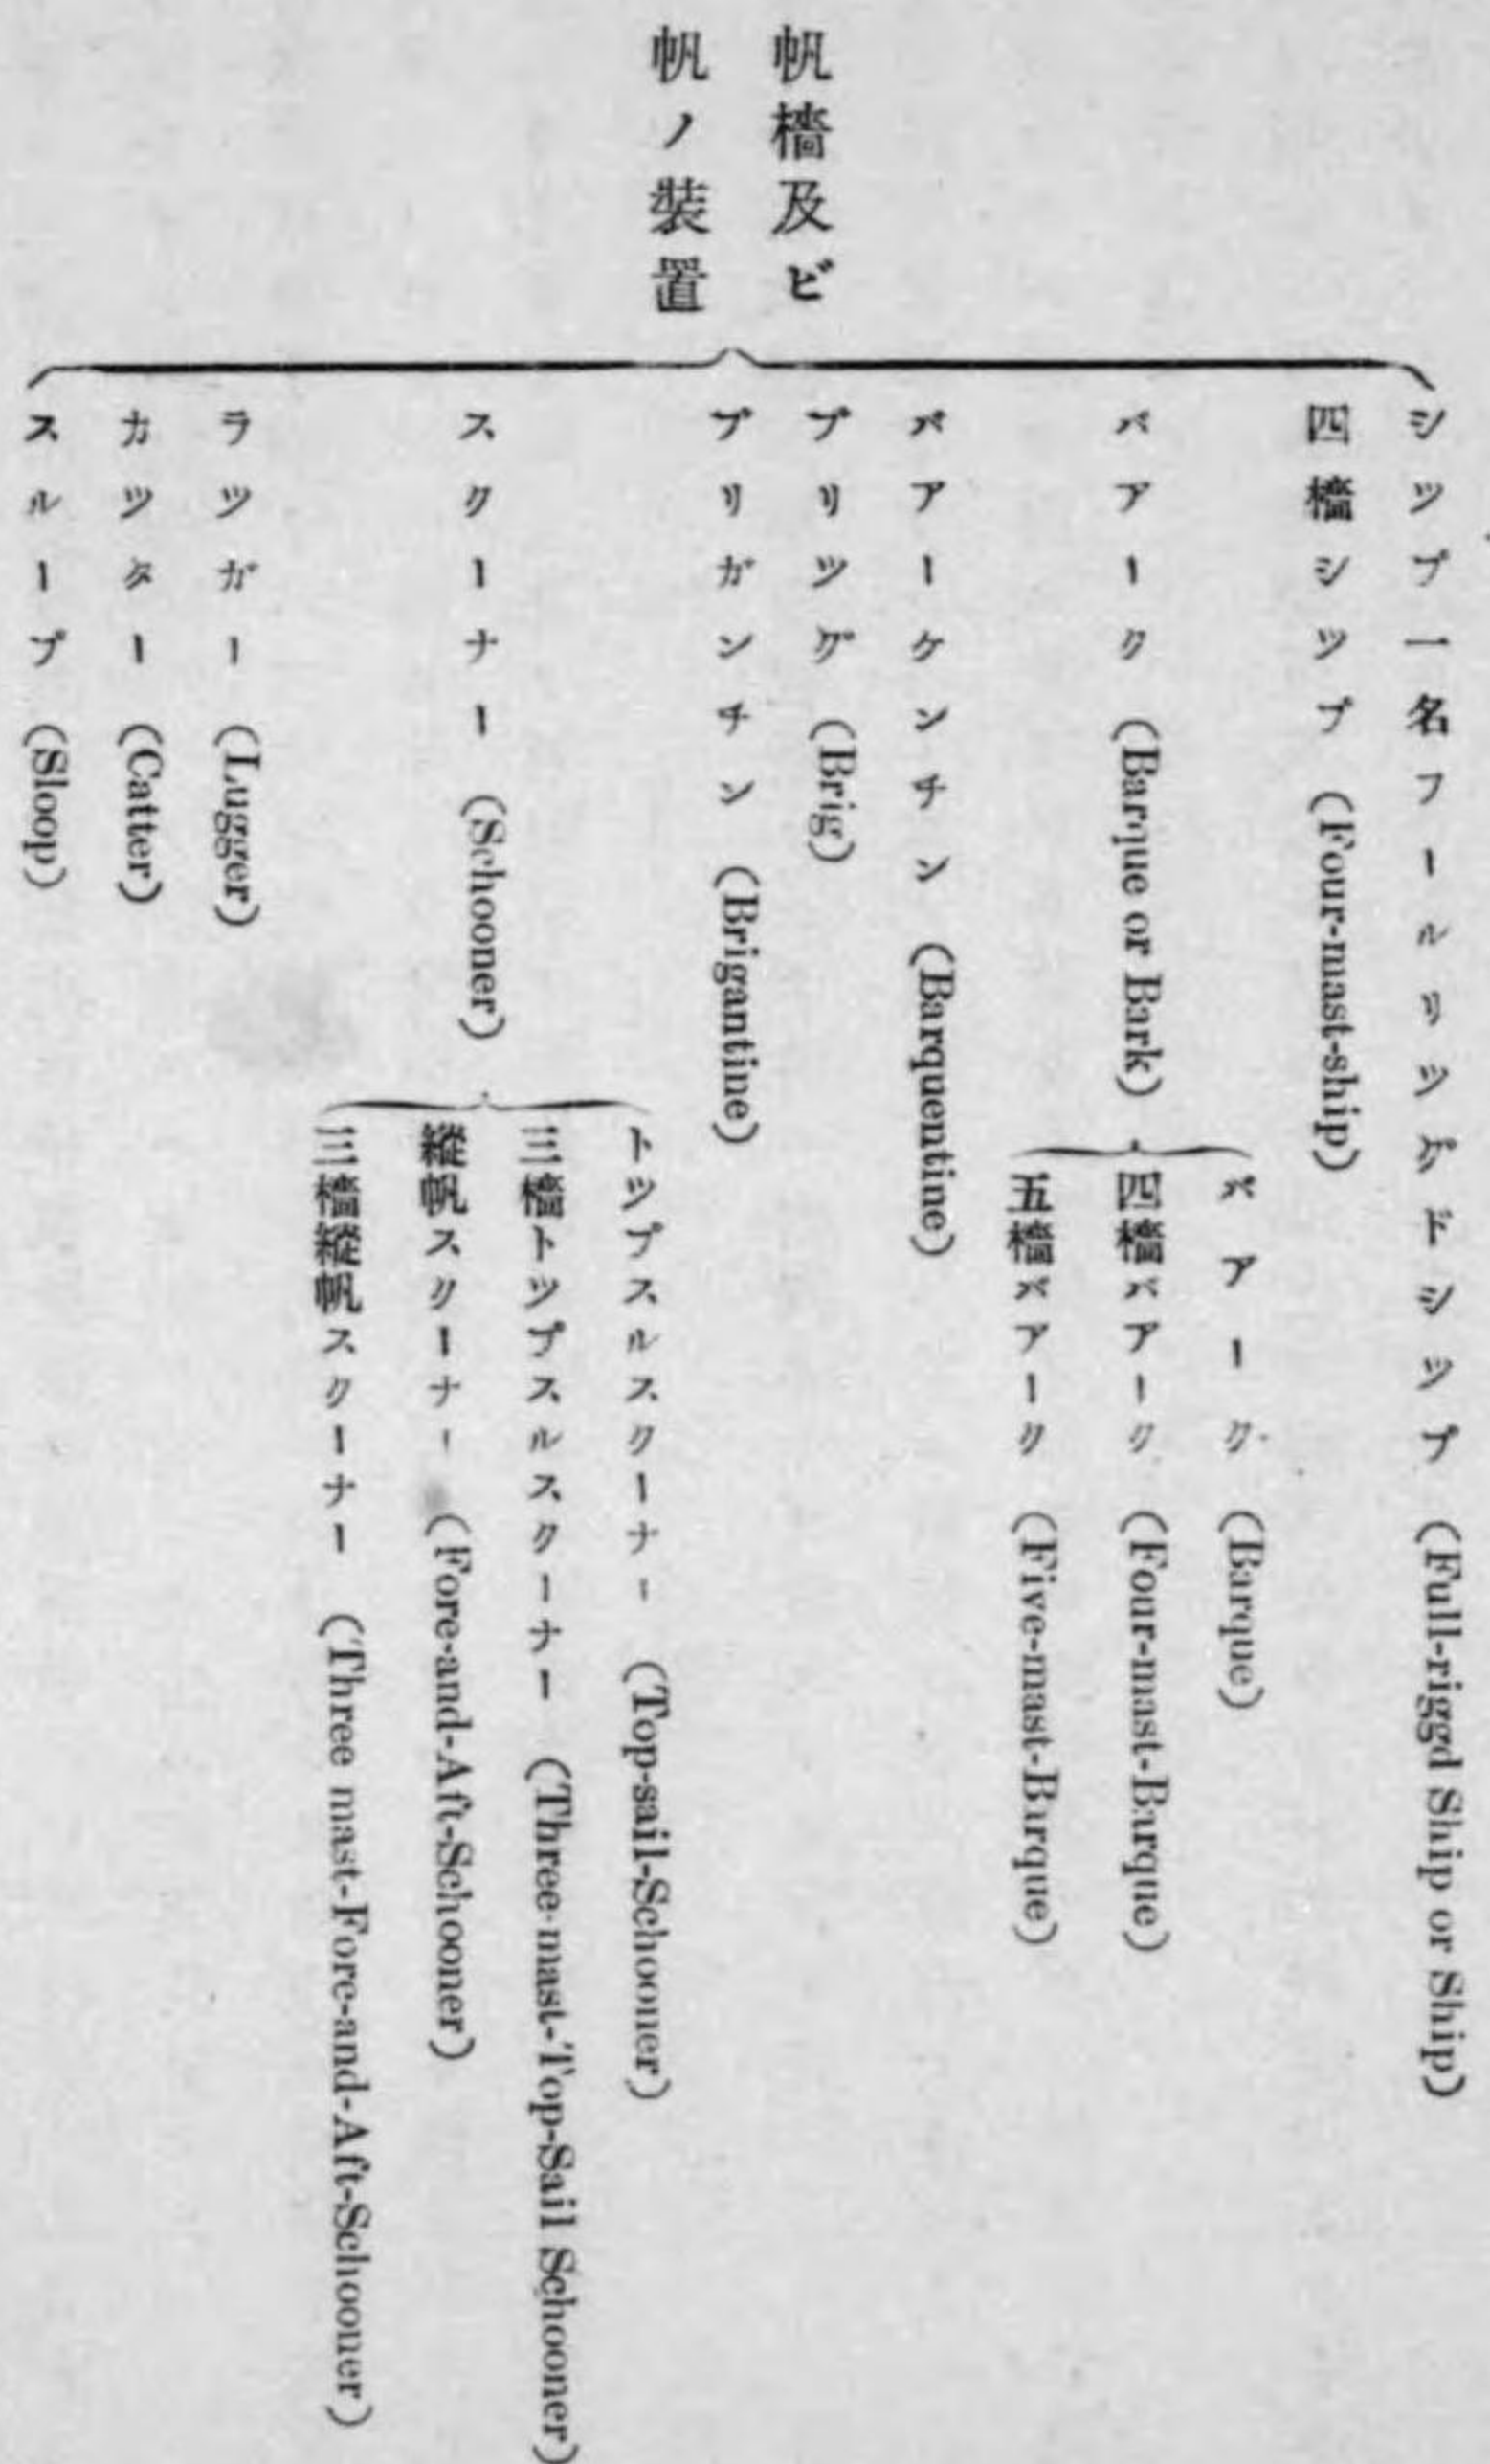 帆檣及ビ
帆ノ裝置
シツプ一名フールリツガドシツプ (Full-riggd Ship or Ship)
四檣シツプ (Four-mast-ship)
バアーク (Barque or Bark)
バアーク (Barque)
四檣バアーク (Four-mast-Barque)
五檣バアーク (Five-mast-Barque)
バアーケンチン (Barquentine)
ブリツグ (Brig)
ブリガンチン (Brigantine)
スクーナー (Schooner)
トツプスルスクーナー (Top-sail-Schooner)
三檣トツプスルスクーナー (Three-mast-Top-Sail Schooner)
縱帆スクーナー (Fore-and-Aft-Schooner)
三檣縱帆スクーナー (Three mast-Fore-and-Aft-Schooner)
ラツガー (Lugger)
カツター (Catter)
スループ (Sloop)